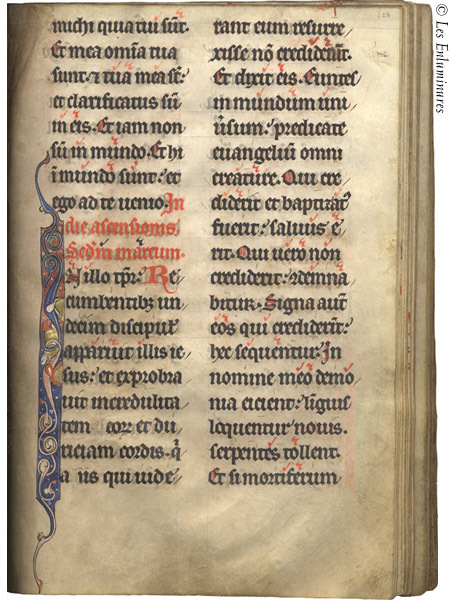 michi quia tui sūt.
Et mea om̄ia tua
sunt. ⁊ tua mea st̄.
et clarificatus sū
in eis. Et iam non
sū in mūndo. Et hi
ī mundo sunt: et
ego ad te uenio. In
die ascensionis
Scdm̄ marcum.
In illo tp̄r: Re
cumbentibꝫ un
decim discipul'
apparuit illis ie
sus: et exprobra
uit incredulita
tem corꝝ et du
riciam cordis. qͥ
a iis qui uide
rant eum resurre
xisse nō crediderūt.
Et dixit eis. Euntes
in mundum uni
uersum: predicate
euangeliū omni
creature. Qui cre
diderit et baptizat9
fuerit: saluus e
rit. Qui uero non
crediderit: ↄdemna
bitur. Signa aut̄
eos qui crediderīt:
hec sequentur. In
nomine meo demo
nia eicient: liguis
loquentur nouis.
serpentes tollent.
Et si mortiferum
© Les Enluminures